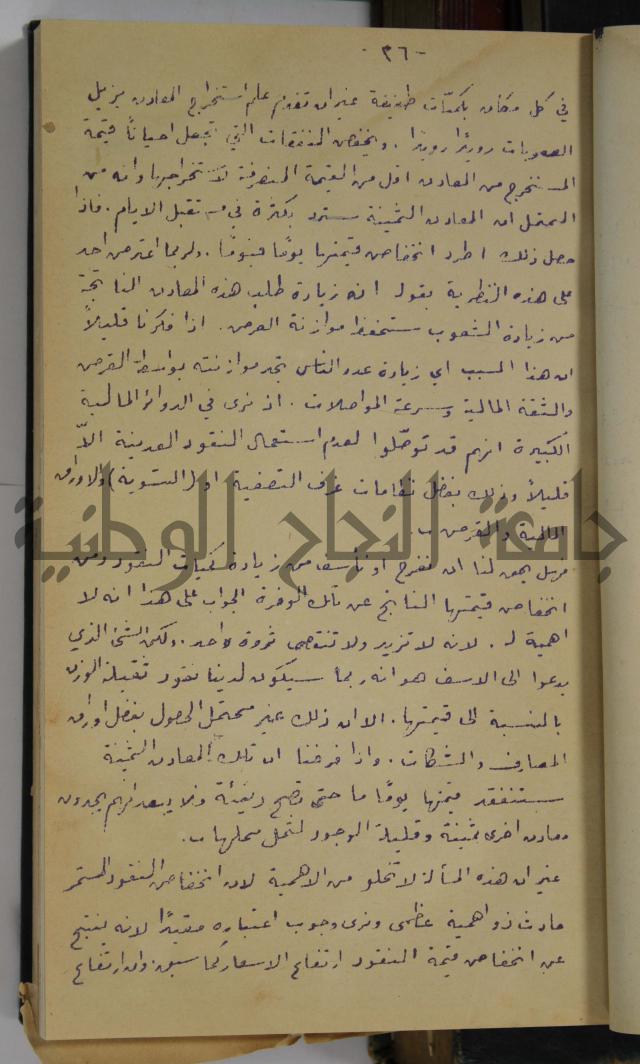 -٢٦-
في كل مكان بكميات طفيفة غير ان تقدم علم استخراج المعادن يزيل
الصعوبات رويدًا رويدًا . ويخفض النفقات التي تجعل احيانًا قيمة
المستخرج من المعادن اقل من القيمة المنصرفة لاستخراجها وانه من
المحتمل ان المعادن الثمينة سترد بكثرة في مستقبل الايام . فاذا
حصل ذلك اطرد انخفاض قيمتها يومًا فيومًا . ولربما اعترض احد
على هذه النظرية بقوله انه زيادة طلب هذه المعادن الناتجة
من زيادة الشعوب ستحفظ موازنة العرض . اذا فكرنا قليلاً
ان هذا السبب اي زيادة عدد الناس يجد موازنته بواسطة القرض
والثقة المالية وسرعة المواصلات . اذ نرى في الدوائر المالية
الكبيرة انهم قد توصّلوا لعدم استعمال النقود المعدنية الاّ
قليلاً وذلك بفضل نظامات غرف التصفية او (التسوية) والاوراق
المالية والقرض .
وهل يحق لنا ان نفرح او نأسف من زيادة كميات النقود ومن
انخفاض قيمتها الناتج عن تلك الوفرة الجواب على هذا انه لا
اهمية له . لانه لا تزيد ولا تنقص ثروة واحد . ولكن الشئ الذي
يدعوا الى الاسف هو انه ربما سيكون لدينا نقود ثقيلة الوزن
بالنسبة الى قيمتها . الا ان ذلك غير محتمل الحصول بفضل اوراق
المصارف والشكات . واذا فرضنا ان تلك المعادن الثمينة
ستنفقد قيمتها يومًا ما حتى تصبح دنيئة فلا يبعد انهم يجدون
معادن اخرى ثمينة وقليلة الوجود لتحل محلها .
غير ان هذه المسألة لا تخلو من الاهمية لان انخفاض النقود المستمر
حادث ذو اهمية عظمى ونرى وجوب اعتباره مفيدًا لانه ينتج
عن انخفاض قيمة النقود ارتفاع الاسعار كما سبق . وان ارتفاع
جامعة النجاح الوطنية